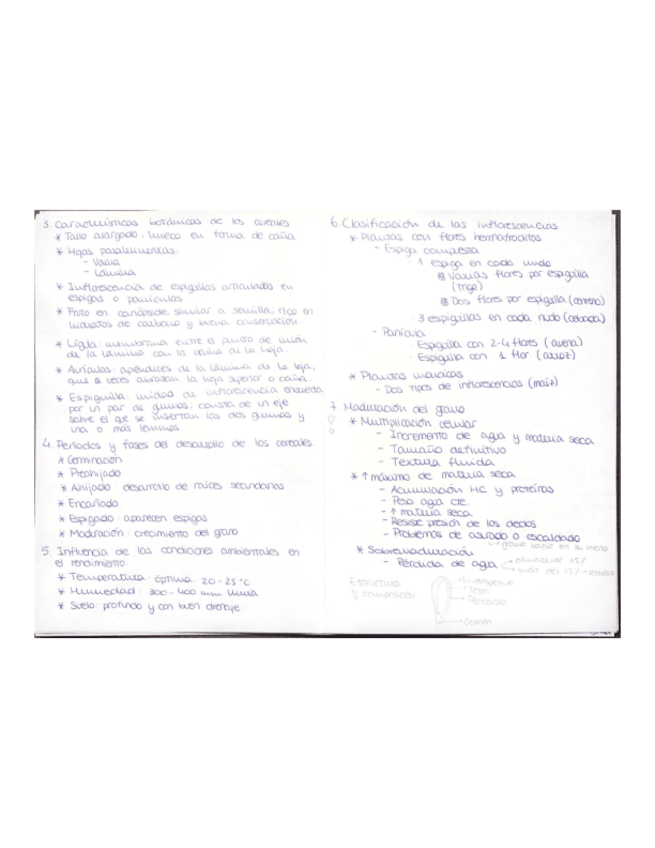 3. Características botánicas de los cereales
* Tallo alargado, hueco en forma de caña
* Hojas paralelinervias:
- Vaina
- Lámina
* Inflorescencia de espiguillas articuladas en
espigas o panículas
* Fruto en cariópside, similar a semilla; rico en
hidratos de carbono y buena conservación.
* Lígula: membrana entre el punto de unión
de la lámina con la vaina de la hoja.
* Aurículas: apéndices de la lámina de la hoja,
que a veces abrazan la hoja superior o caña.
* Espiguilla: unidad de inflorescencia envuelta
por un par de glumas; consta de un eje
sobre el que se insertan las dos glumas y
una o más lemnas
4. Períodos y fases del desarrollo de los cereales
* Germinación
* Preahijado
* Ahijado: desarrollo de raíces secundarias
* Encañado
* Espigado: aparecen espigas
* Maduración: crecimiento del grano
5. Influencia de las condiciones ambientales en
el rendimiento.
* Temperatura: óptima: 20-25°C
* Humedad: 300-400 mm lluvia
* Suelo: profundo y con buen drenaje
6. Clasificación de las inflorescencias
* Plantas con flores hermafroditas
- Espiga compuesta
· 1 espiga en cada nudo
Varias flores por espiguilla
(trigo)
Dos flores por espiguilla (centeno)
· 3 espiguillas en cada nudo (cebada)
- Panícula
Espiguilla con 2-4 flores (avena)
· Espiguilla con 1 flor (arroz)
* Plantas monoicas
- Dos tipos de inflorescencias (maíz)
7. Maduración del grano
* Multiplicación celular
- Incremento de agua y materia seca
- Tamaño definitivo
- Textura fluida
* ↑ máximo de materia seca
- Acumulación HC y proteínas
- Peso agua cte.
- ↑ materia seca
- Resiste presión de los dedos
- Problemas de asurado o escaldado
→ grano vacío en su
* Sobremaduración
- Pérdida de agua → 15%
más del 15% →
Estructura
y composición
→ Endospermo
→ Testa
→ Pericarpio
→ Germen